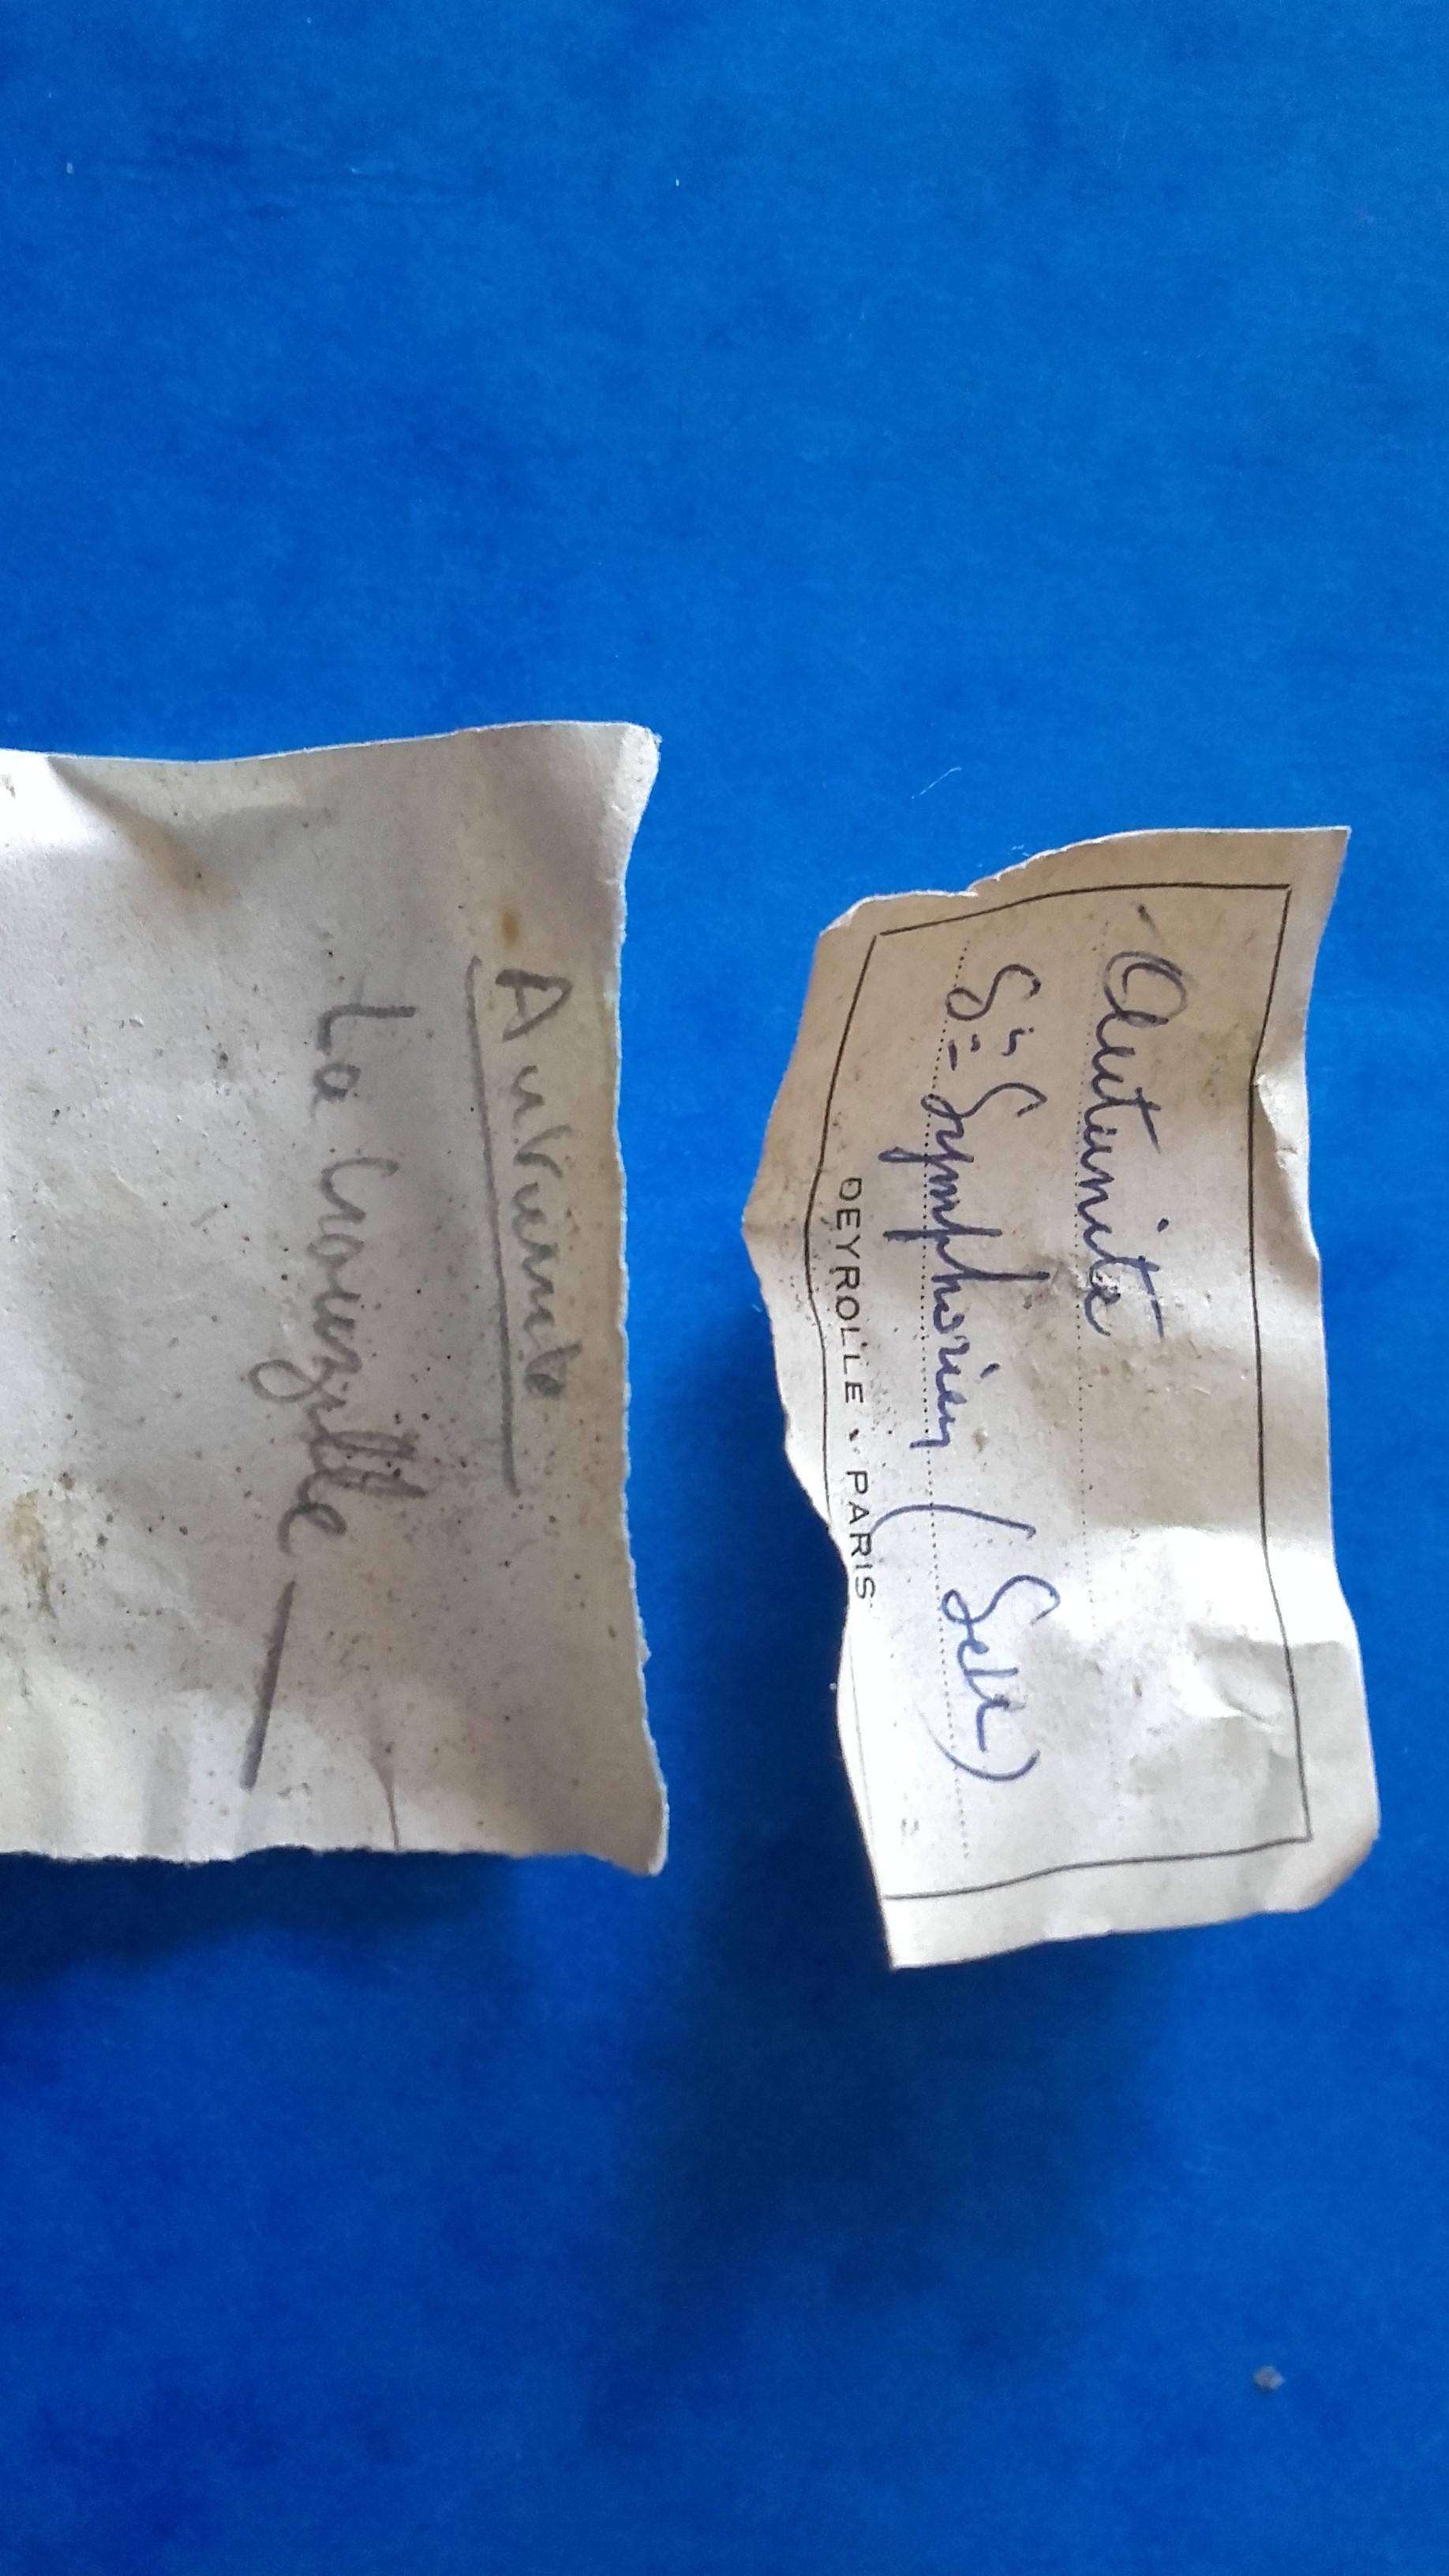 Autunite
La Crouzille
Autunite
St Symphorien (S et L)
DEYROLLE - PARIS